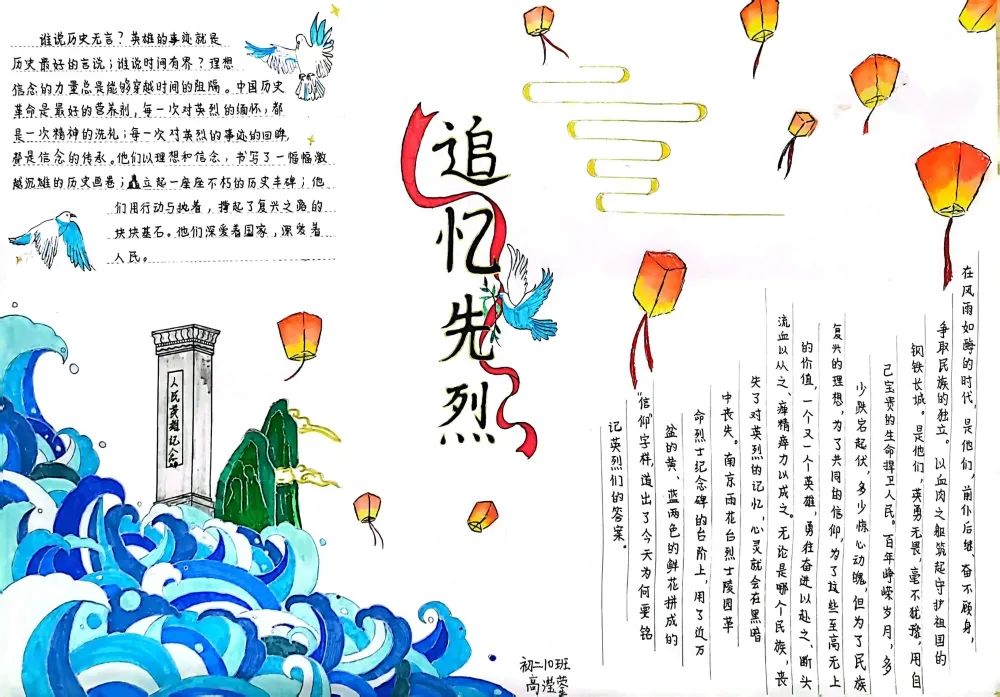 谁说历史无言?英雄的事迹就是
历史最好的言说;谁说时间有界?理想
信念的力量总是能够穿越时间的阻隔。中国历史
革命是最好的营养剂,每一次对英烈的缅怀,都
是一次精神的洗礼;每一次对英烈的事迹的回眸,
都是信念的传承。他们以理想和信念,书写了一幅幅激
越沉雄的历史画卷;立起一座座不朽的历史丰碑;他
们用行动与执着,撑起了复兴之路的
块块基石。他们深爱着国家,深爱着
人民。
追忆先烈
人民英雄纪念
在风雨如晦的时代,是他们,前仆后继、奋不顾身,
争取民族的独立。以血肉之躯筑起守护祖国的
钢铁长城。是他们,英勇无畏,毫不犹豫,用自
己宝贵的生命捍卫人民。百年峥嵘岁月,多
少跌宕起伏,多少惊心动魄,但为了民族
复兴的理想,为了共同的信仰,为了这些至高无上
的价值,一个又一个英雄,勇往奋进以赴之、断头
流血以从之、瘁精瘁力以成之。无论是哪个民族,丧
失了对英烈的记忆,心灵就会在黑暗
中丧失。南京雨花台烈士陵园革
命烈士纪念碑的台阶上,用了近万
盆的黄、蓝两色的鲜花拼成的
"信仰"字样,道出了今天为何要铭
记英烈们的答案。
初二10班
高滢莹